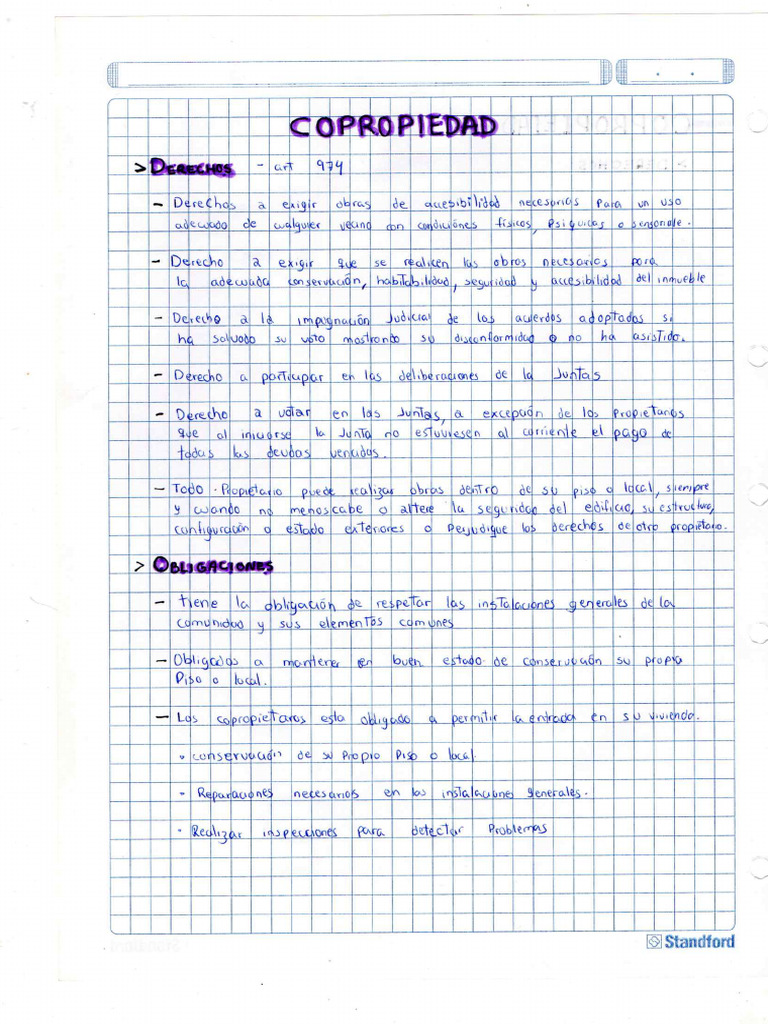 COPROPIEDAD
> DERECHOS - art 974
- Derechos a exigir obras de accesibilidad necesarias para un uso
adecuado de cualquier vecino con condiciónes físicos, Psíquicas o sensoriale.
- Derecho a exigir que se realicen las obras necesarios para
la adecuada conservación, habitabilidad, seguridad y accesibilidad del inmueble
- Derecho a la impugnación Judicial de los acuerdos adoptados si
ha salvado su voto mostrando su disconformidad o no ha asistido.
- Derecho a participar en las deliberaciones de la Juntas
- Derecho a votar en las Juntas, a excepción de los Propietarios
que al iniciarse la Junta no estuviesen al corriente el pago de
todas las deudas vencidas.
- Todo Propietario puede realizar obras dentro de su piso o local, siempre
y cuando no menoscabe o altere la seguridad del edificio, su estructura,
configuración o estado exteriores o Perjudique los derechos de otro propietario.
> OBLIGACIONES
- tiene la obligación de respetar las instalaciones generales de la
comunidad y sus elementos comunes
- Obligados a mantener en buen estado de conservación su propia
Piso o local.
- Los copropietaros esta obligado a permitir la entrada en su vivienda.
• conservación de su Propio Piso o local.
• Reparaciones necesarios en los instalaciones generales.
• Realizar inspecciones para detectar Problemas
Standford